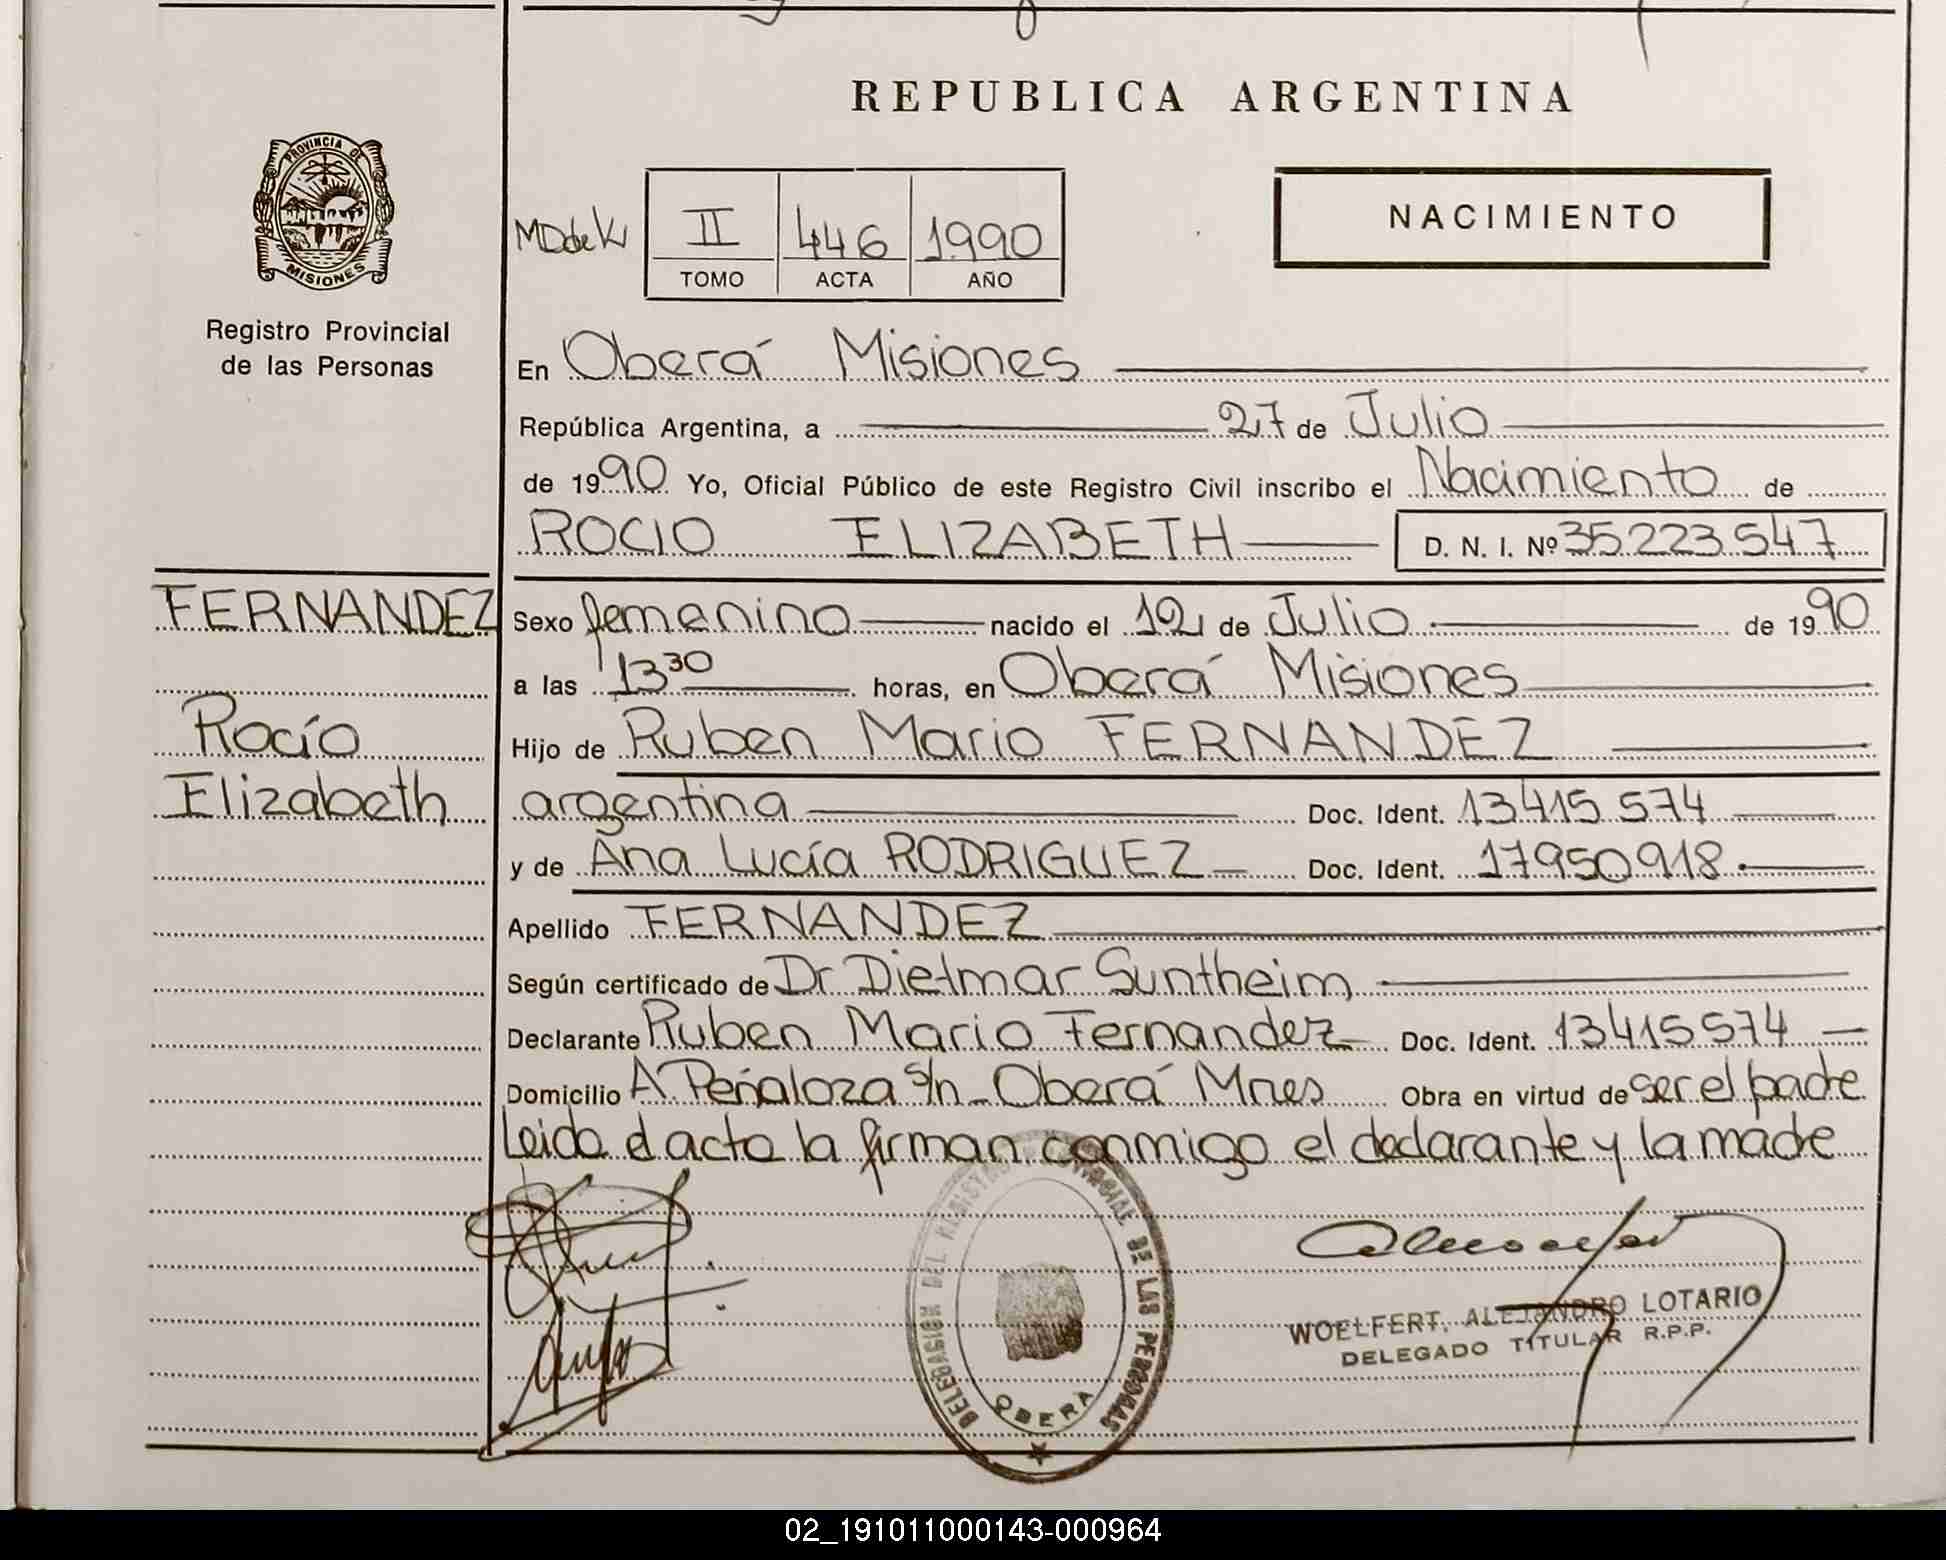 REPUBLICA ARGENTINA
PROVINCIA DE
MISIONES
Registro Provincial
de las Personas
II 446 1990
TOMO ACTA AÑO
NACIMIENTO
En Oberá Misiones
República Argentina, a 27 de Julio
de 1990 Yo, Oficial Público de este Registro Civil inscribo el Nacimiento de
ROCIO ELIZABETH D. N. I. Nº 35223547
FERNANDEZ
Rocío
Elizabeth
Sexo femenino nacido el 12 de Julio de 1990
a las 13 30 horas, en Oberá Misiones
Hijo de Ruben Mario FERNANDEZ
argentina Doc. Ident. 13415574
y de Ana Lucía RODRIGUEZ Doc. Ident. 17950918
Apellido FERNANDEZ
Según certificado de Dr Dietmar Suntheim
Declarante Ruben Mario Fernandez Doc. Ident. 13415574
Domicilio A. Peñaloza s/n - Oberá Mnes Obra en virtud de ser el padre
Leida el acta la firman conmigo el declarante y la madre
DELEGACION DEL REGISTRO PROVINCIAL DE LAS PERSONAS
OBERA
WOELFERT, ALEJANDRO LOTARIO
DELEGADO TITULAR R.P.P.
02_191011000143-000964